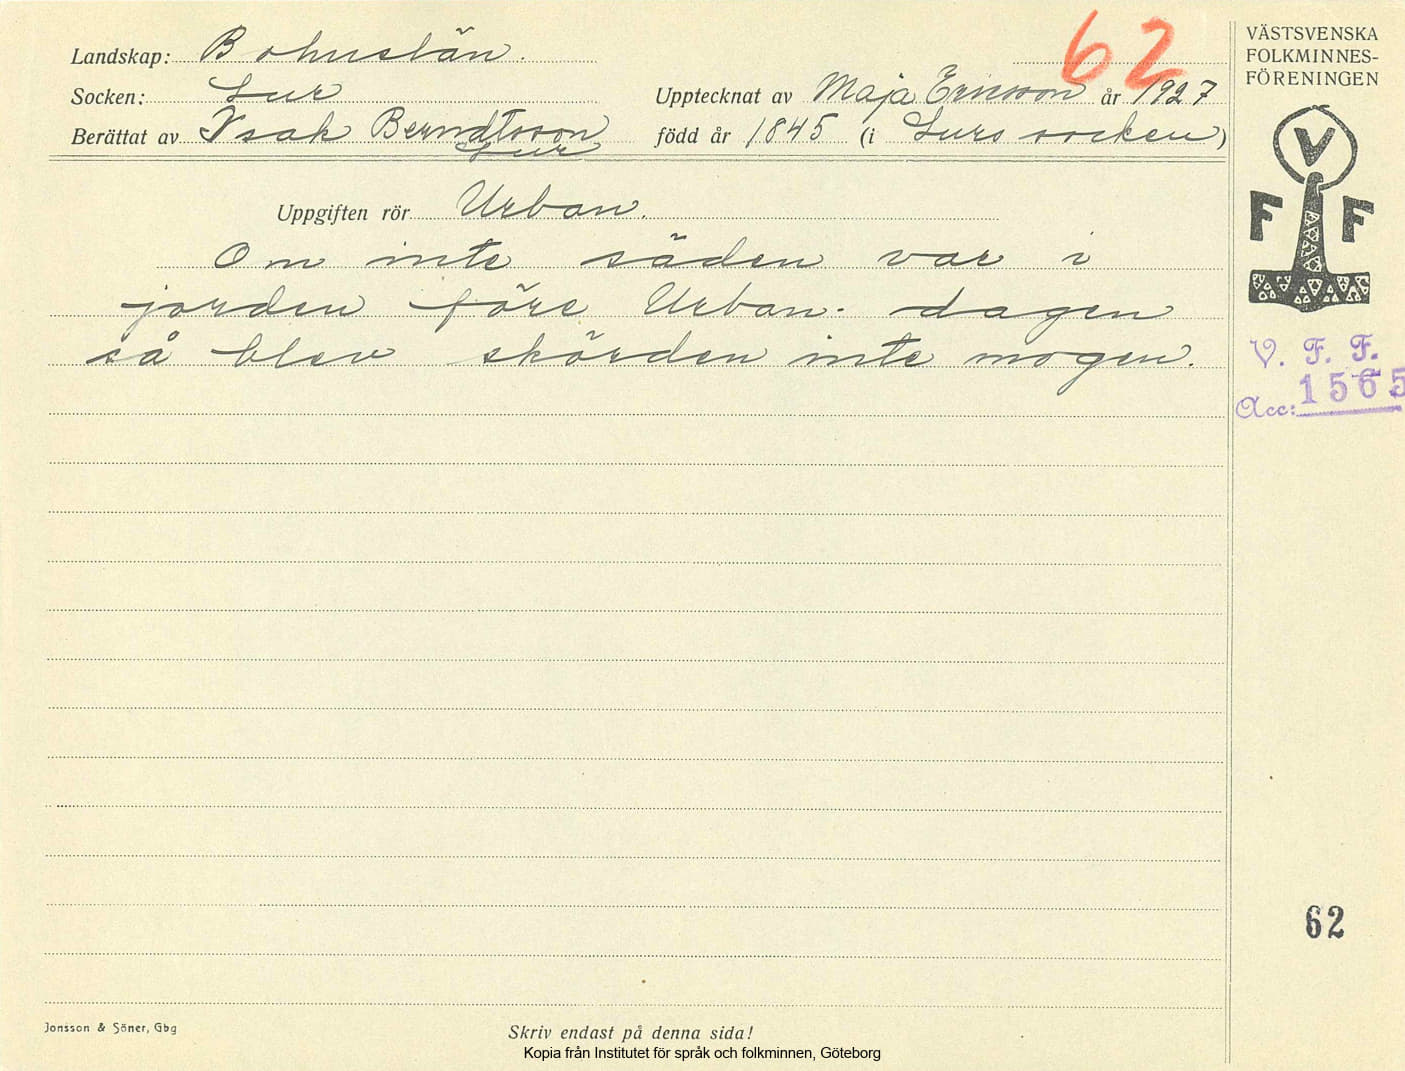 62
Landskap: Bohuslän.
Socken: Lur
Upptecknat av Maja Ericsson år 1927
Berättat av Isak Berndtsson
Lur
född år 1845 (i Lurs socken)
Uppgiften rör Urban.
Om inte säden var i
jorden före Urban-dagen
så blev skörden inte mogen.
VÄSTSVENSKA
FOLKMINNES-
FÖRENINGEN
V
F F
V. F. F.
Acc: 1565
62
Jonsson & Söner, Gbg
Skriv endast på denna sida!
Kopia från Institutet för språk och folkminnen, Göteborg